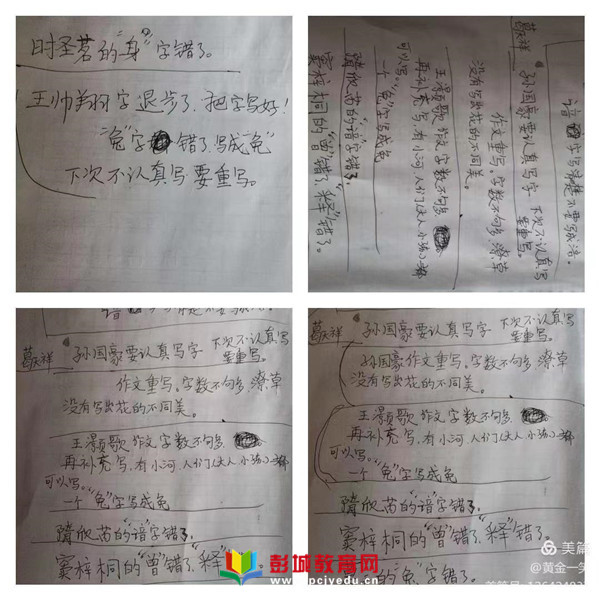 时圣茗的“身”字错了。
王帅翔字退步了,把字写好!
“兔”字错了写成“免”
下次不认真写要重写。
谙字写清楚不要写成洁。
葛天祥 孙国豪要认真写字 下次不认真写要重写。
作文重写。字数不够多,潦草
没有写出花的不同美。
王灏歌 作文字数不够多
再补充写,有小河,人们(大人,小孩)都
可以写。
一个“兔”字写成免
隋欣苗的“谙”字错了。
窦梓桐的“曾”错了,“释”错了。
葛天祥 孙国豪要认真写字 下次不认真写要重写。
作文重写。字数不够多,潦草
没有写出花的不同美。
王灏歌 作文字数不够多
再补充写,有小河,人们(大人,小孩)都
可以写。
一个“兔”字写成免
隋欣苗的“谙”字错了。
窦梓桐的“曾”错了,“释”错了。
葛天祥 孙国豪要认真写字 下次不认真写要重写。
孙国豪作文重写。字数不够多,潦草
没有写出花的不同美。
王灏歌 作文字数不够多
再补充写,有小河,人们(大人,小孩)都
可以写。
一个“兔”字写成免
隋欣苗的“谙”字错了。
窦梓桐的“曾”错了,“释”错了。
的“兔”字错了。
彭城教育网
www.pcjyedu.cn
美篇
@黄金一笑